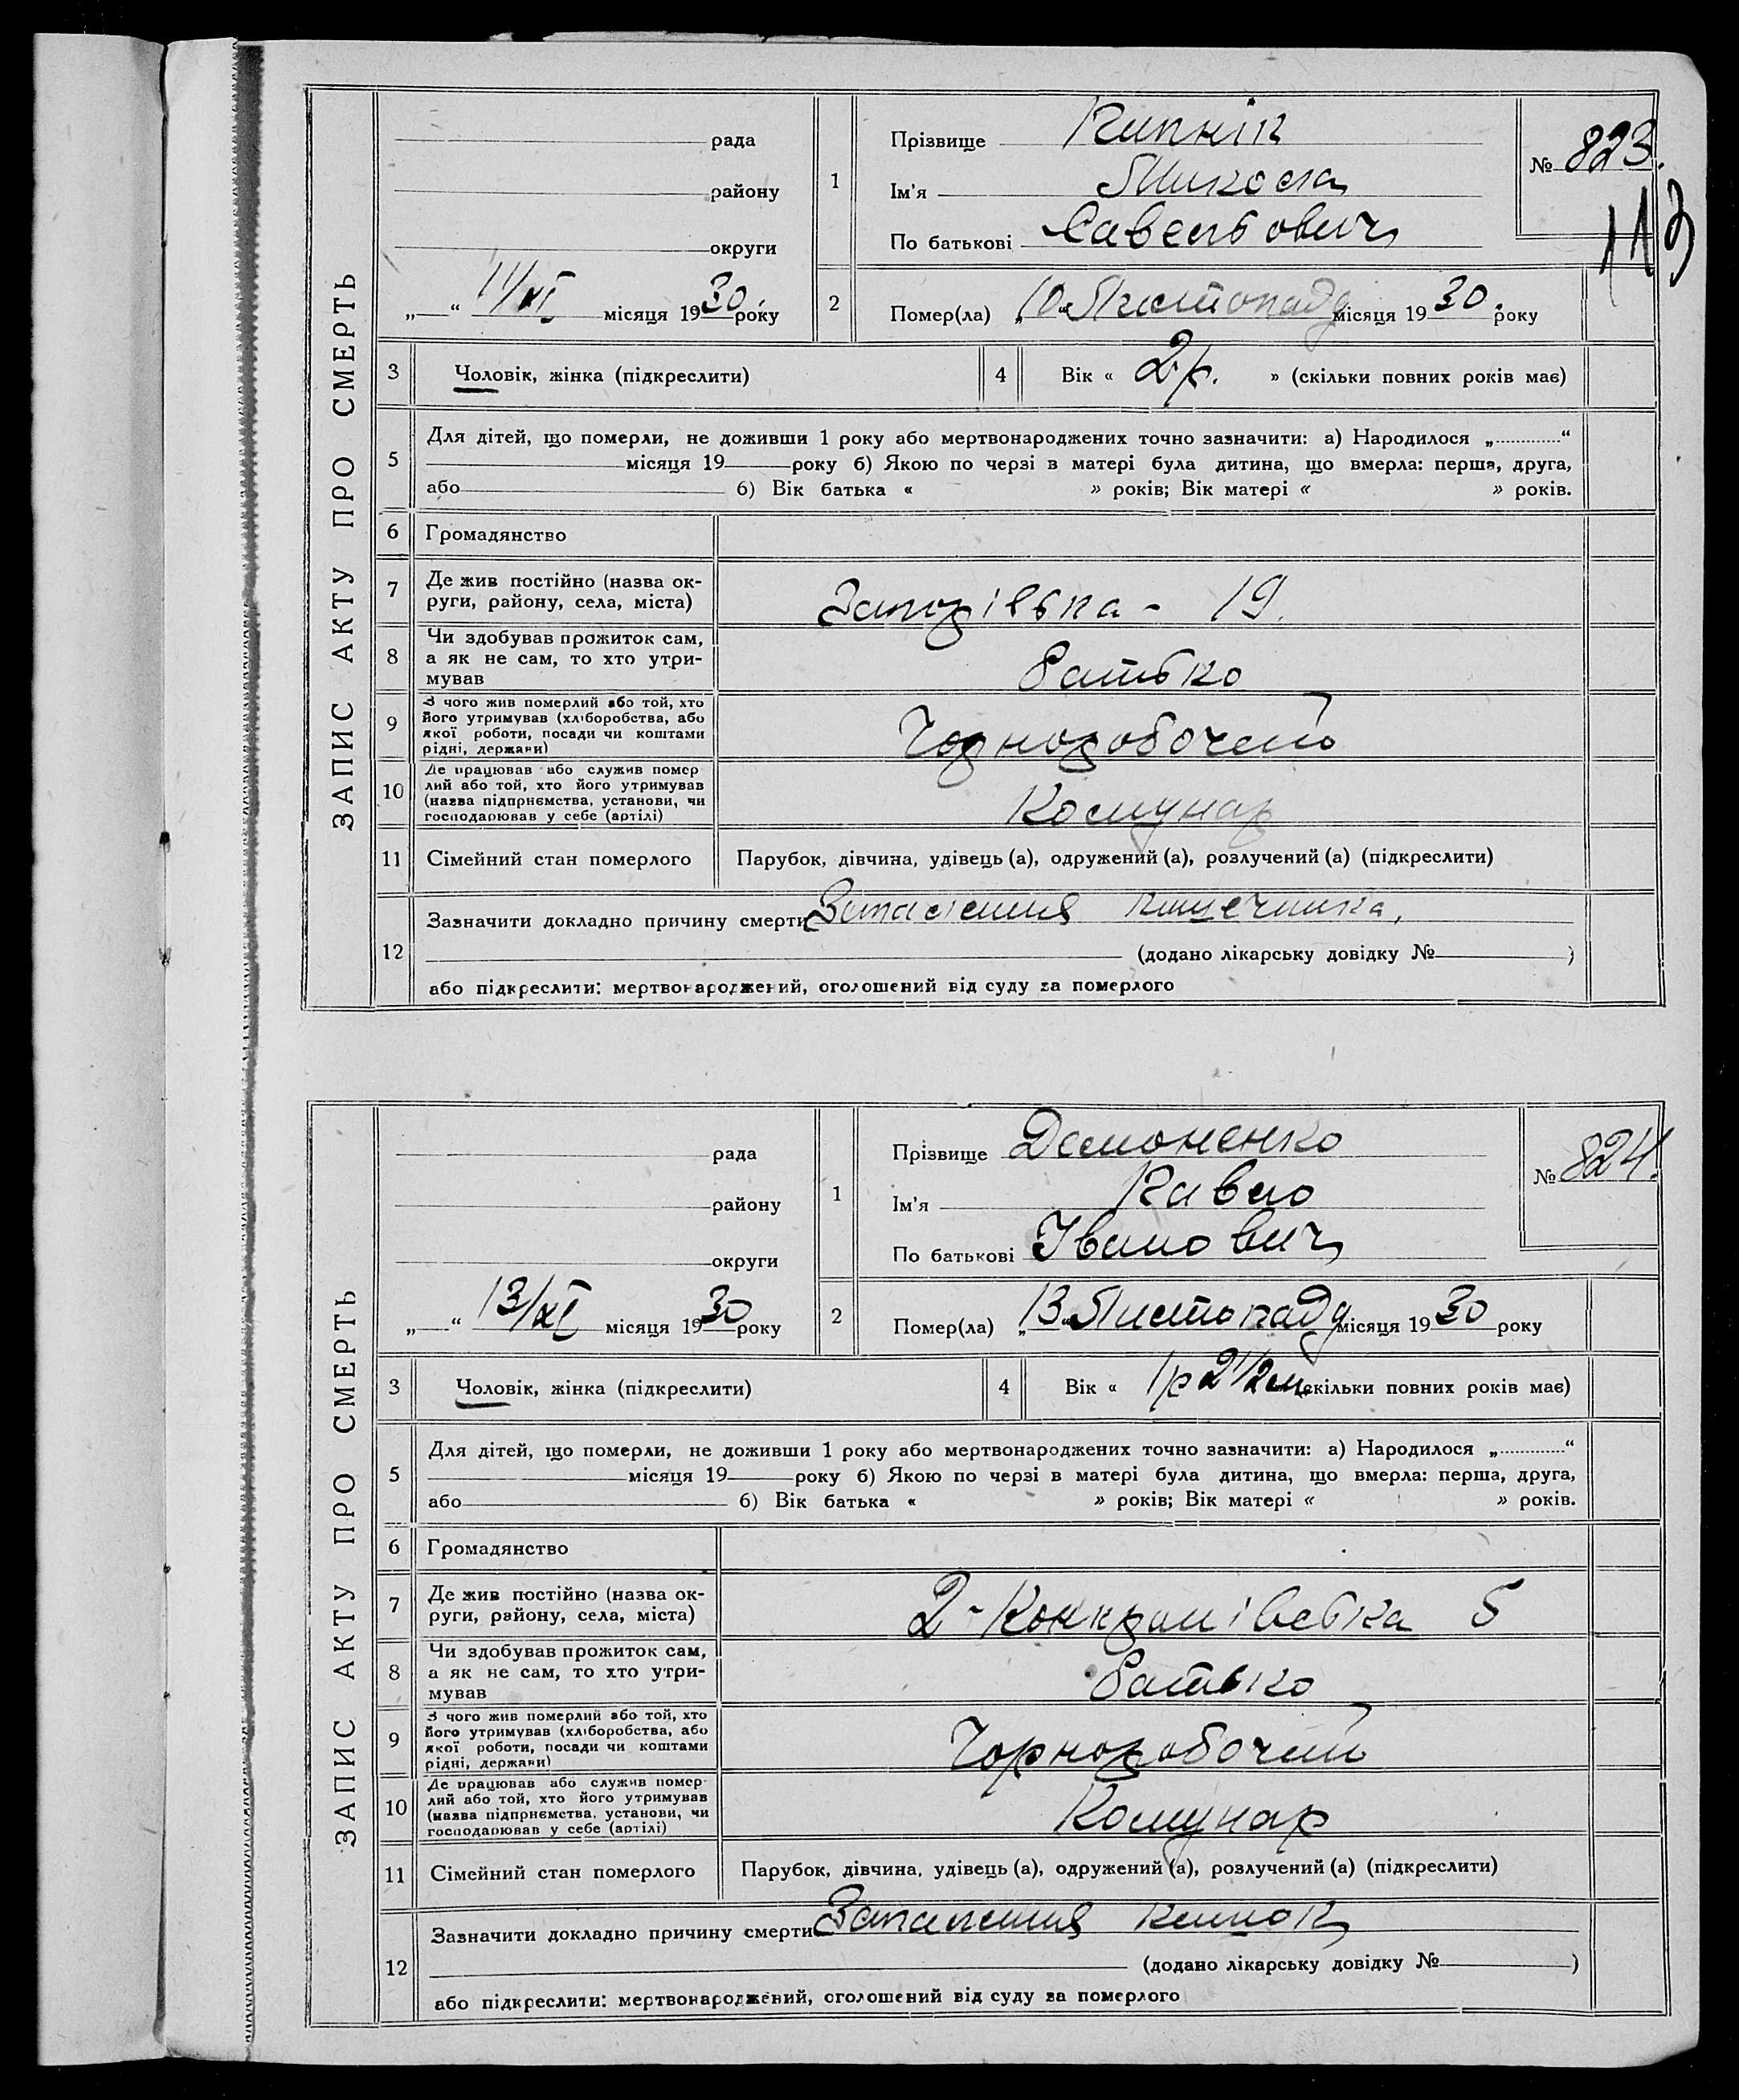 ЗАПИС АКТУ ПРО СМЕРТЬ
рада
району
округи
„ “ 11/XI місяця 1930 року
1
Прізвище Кипнік
Ім'я Микола
По батькові Савельович
№ 823.
113
2
Помер(ла) „10“ Листопаду місяця 1930. року
3
Чоловік, жінка (підкреслити)
4
Вік « 2 р. » (скільки повних років має)
5
Для дітей, що померли, не доживши 1 року або мертвонароджених точно зазначити: а) Народилося „ “
місяця 19 року б) Якою по черзі в матері була дитина, що вмерла: перша, друга,
або б) Вік батька « » років; Вік матері « » років.
6
Громадянство
7
Де жив постійно (назва ок-
руги, району, села, міста)
19.
8
Чи здобував прожиток сам,
а як не сам, то хто утри-
мував
батько
9
З чого жив померлий або той, хто
його утримував (хліборобства, або
якої роботи, посади чи коштами
рідні, держави)
Чорноробочей
10
Де працював або служив помер
лий або той, хто його утримував
(назва підприємства, установи, чи
господарював у себе (артілі)
Комунар
11
Сімейний стан померлого
Парубок, дівчина, удівець (а), одружений (а), розлучений (а) (підкреслити)
12
Зазначити докладно причину смерти Запаления кишечника,
(додано лікарську довідку № )
або підкреслити: мертвонароджений, оголошений від суду за померлого
ЗАПИС АКТУ ПРО СМЕРТЬ
рада
району
округи
„ “ 13/XI місяця 1930 року
1
Прізвище Демоненко
Ім'я Павло
По батькові Іванович
№ 824.
2
Помер(ла) „13“ Листопаду місяця 1930 року
3
Чоловік, жінка (підкреслити)
4
Вік « 1 р 2 1/2 м. скільки повних років має)
5
Для дітей, що померли, не доживши 1 року або мертвонароджених точно зазначити: а) Народилося „ “
місяця 19 року б) Якою по черзі в матері була дитина, що вмерла: перша, друга,
або б) Вік батька « » років; Вік матері « » років.
6
Громадянство
7
Де жив постійно (назва ок-
руги, району, села, міста)
2 - 5
8
Чи здобував прожиток сам,
а як не сам, то хто утри-
мував
батько
9
З чого жив померлий або той, хто
його утримував (хліборобства, або
якої роботи, посади чи коштами
рідні, держави)
Чорноробочий
10
Де працював або служив помер-
лий або той, хто його утримував
(назва підприємства, установи, чи
господарював у себе (артілі)
Комунар
11
Сімейний стан померлого
Парубок, дівчина, удівець (а), одружений (а), розлучений (а) (підкреслити)
12
Зазначити докладно причину смерти Запаления кишок
(додано лікарську довідку № )
або підкреслити: мертвонароджений, оголошений від суду за померлого